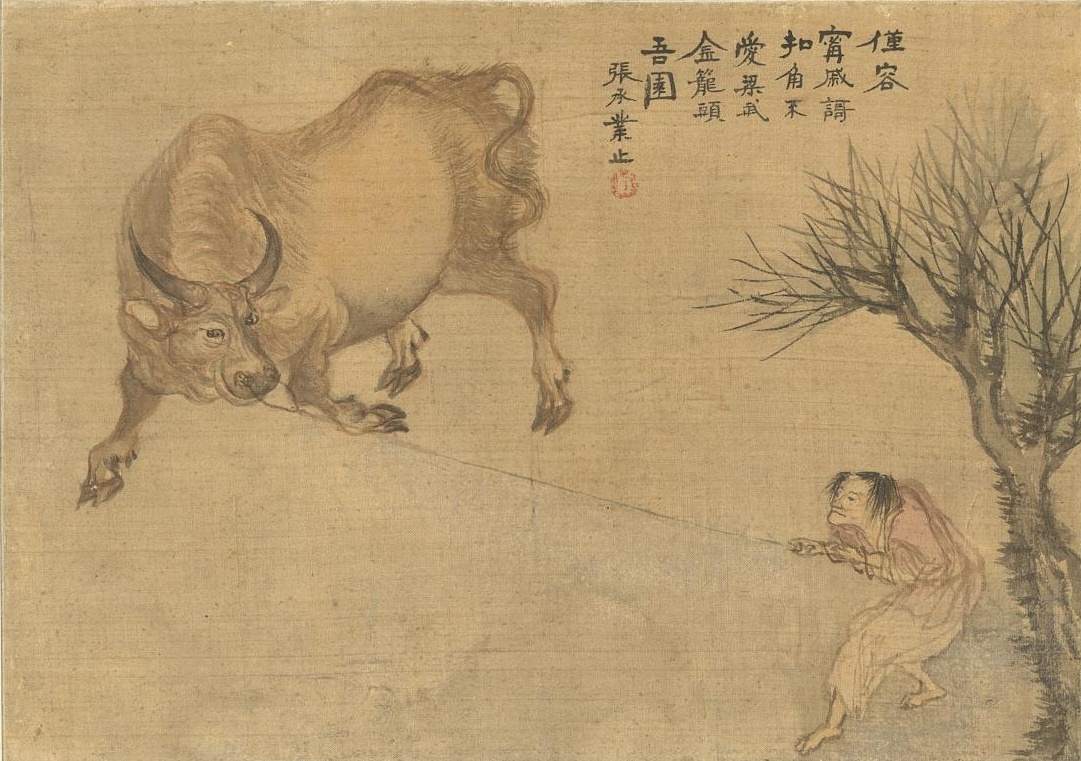 僅容
甯戚謌
扣角不
愛梁武
金籠頭
吾園
張承業止